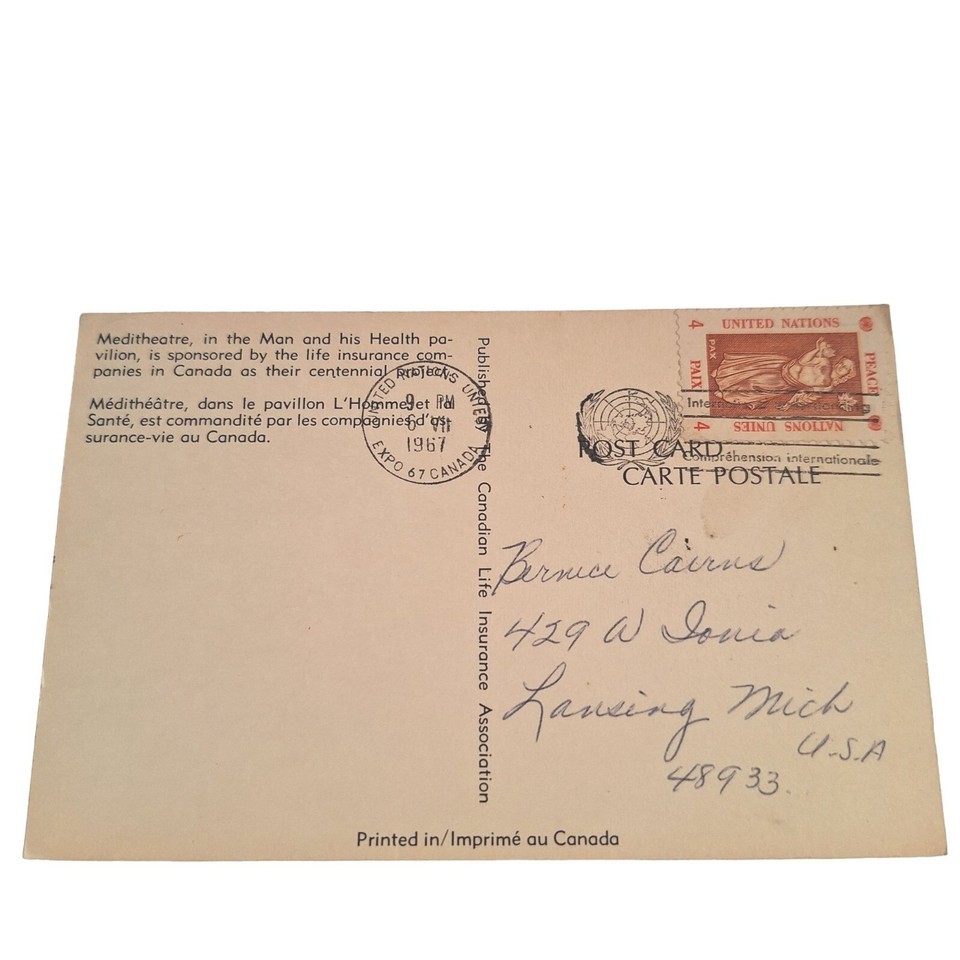 Meditheatre, in the Man and his Health pa-
vilion, is sponsored by the life insurance com-
panies in Canada as their centennial project.
Médithéâtre, dans le pavillon L'Homme et la
Santé, est commandité par les compagnies d'as-
surance-vie au Canada.
UNITED NATIONS UNIES
9 PM
6 VII
1967
EXPO 67 CANADA
Published by The Canadian Life Insurance Association
4 UNITED NATIONS
PAX
PAIX
PEACE
4 NATIONS UNIES
POST CARD
Compréhension internationale
CARTE POSTALE
Bernice Cairns
429 W Ionia
Lansing Mich
U.S.A
48933.
Printed in/Imprimé au Canada